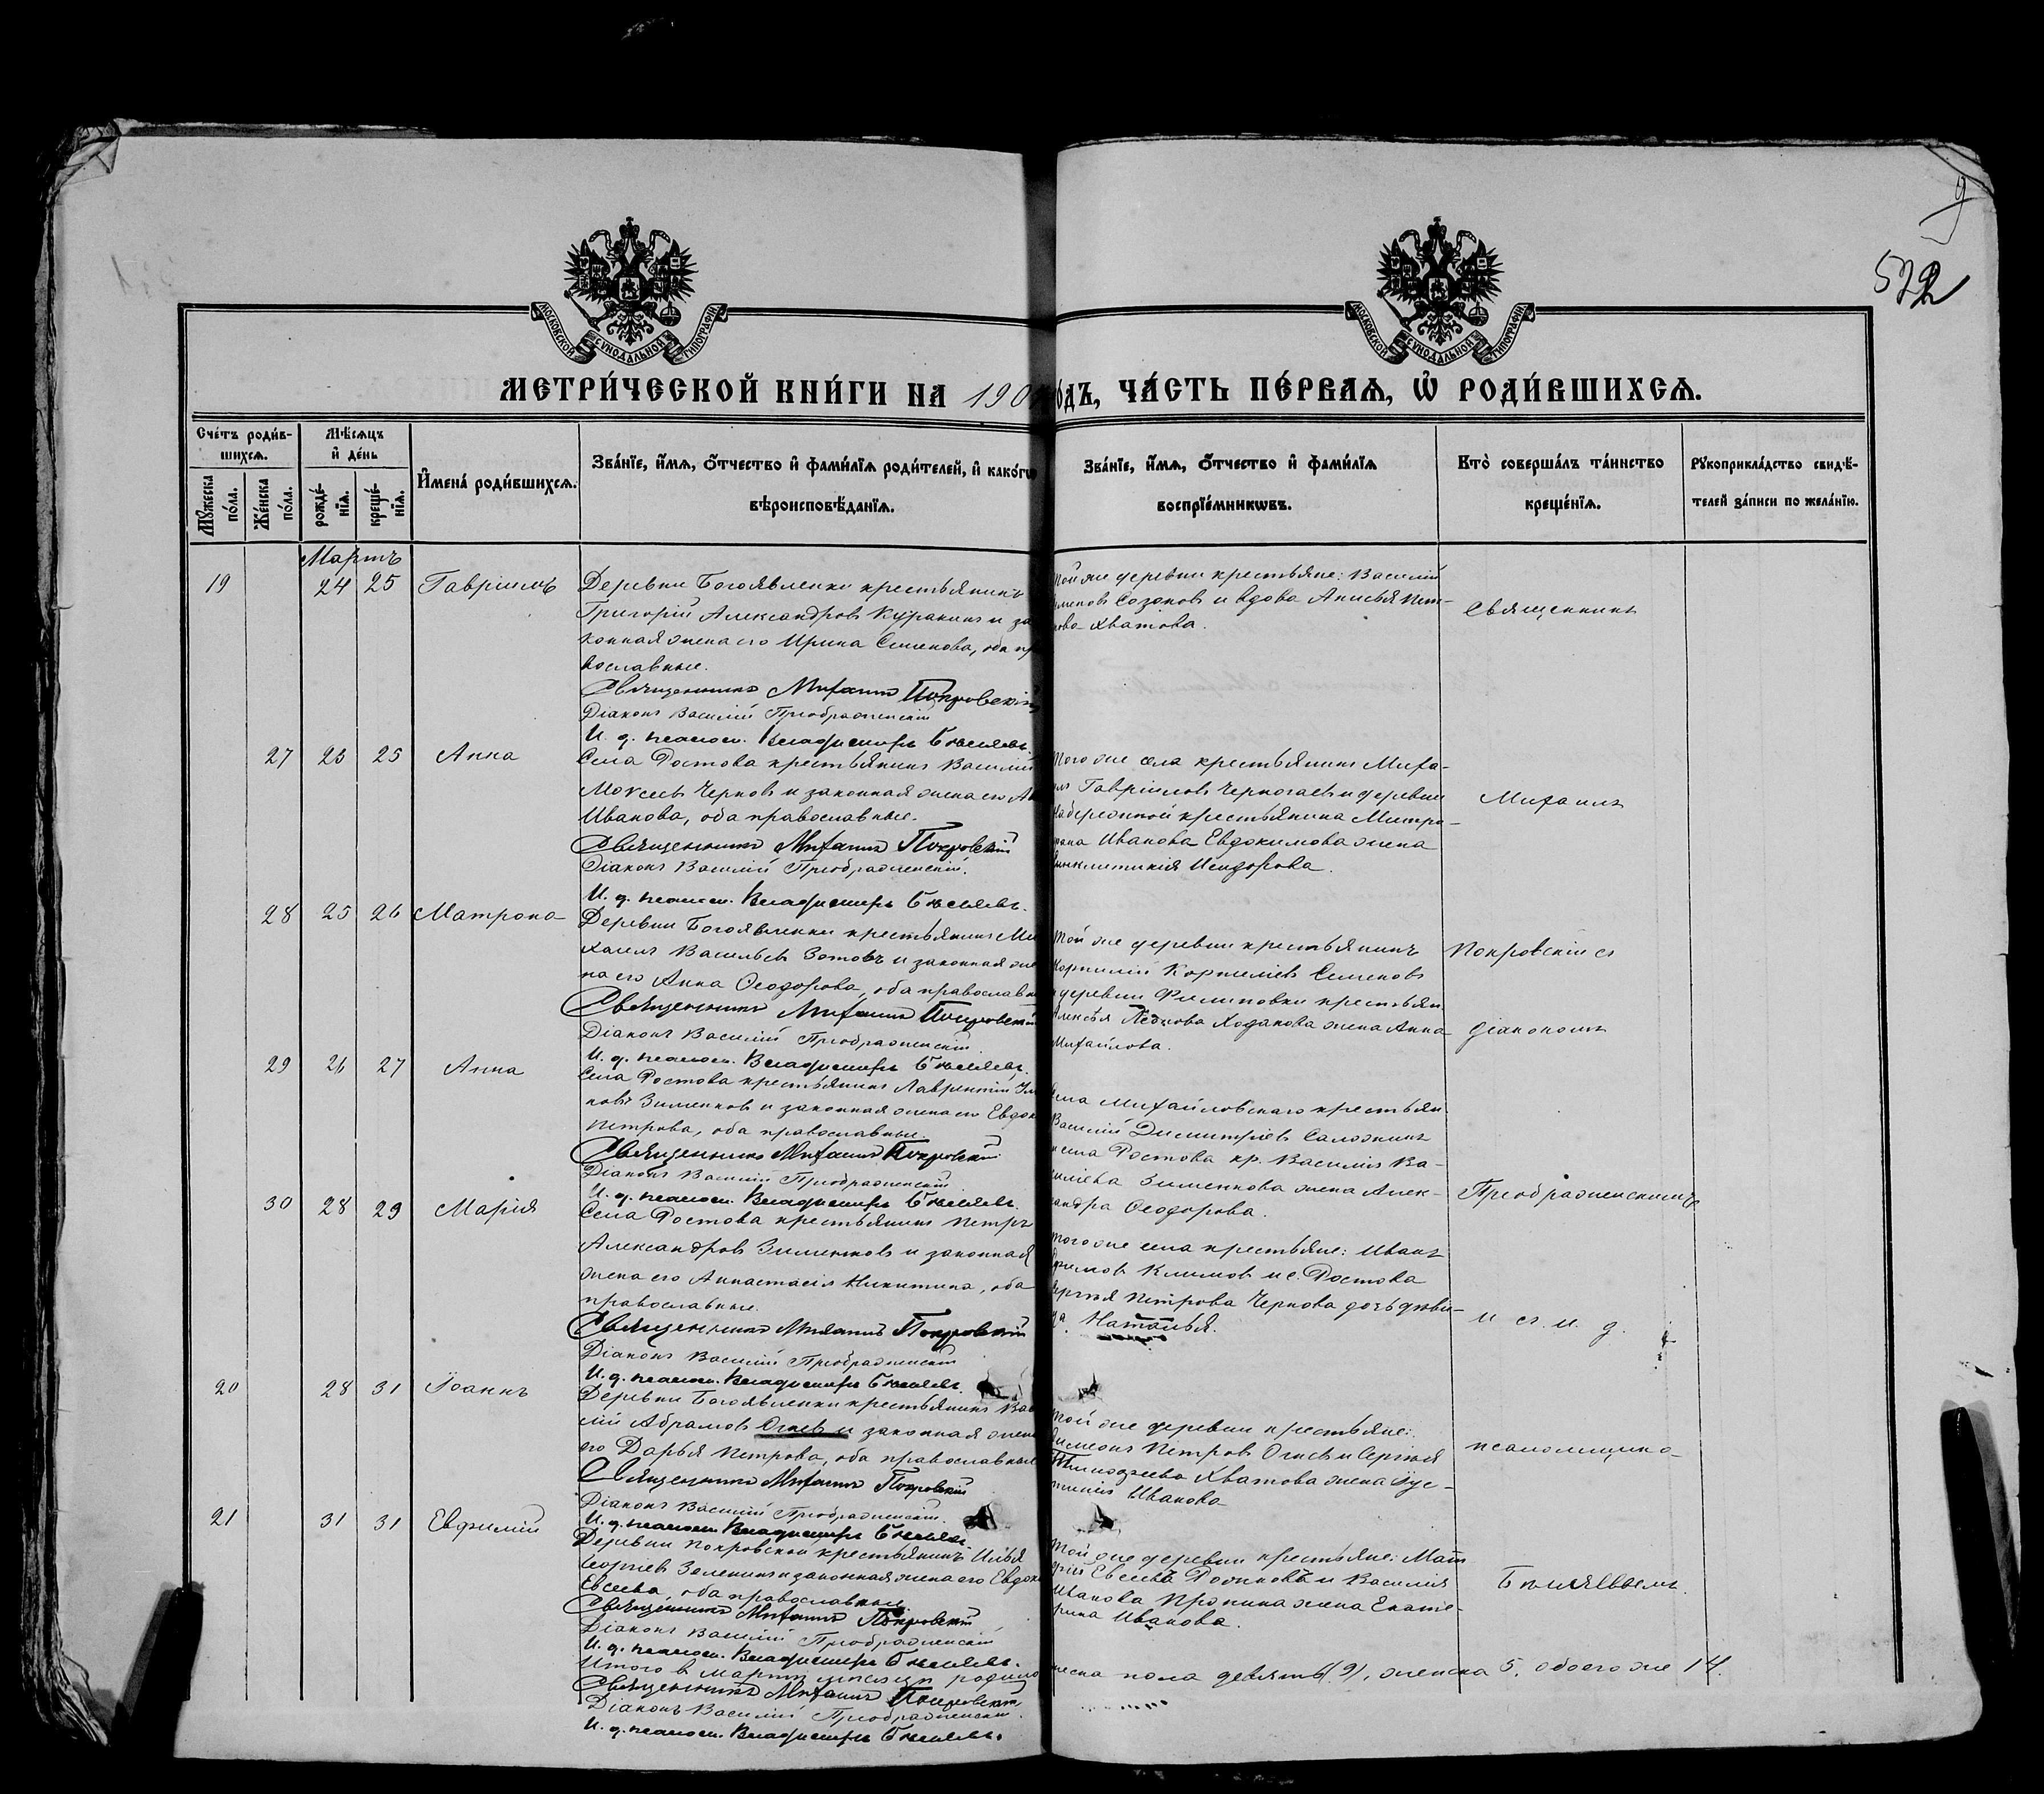 9
522
МОСКОВСКОЙ СУНОДАЛЬНОЙ ТИПОГРАФІИ
МОСКОВСКОЙ СУНОДАЛЬНОЙ ТИПОГРАФІИ
МЕТРИ́ЧЕСКОЙ КНИ́ГИ НА 190
О́ДЪ, ЧА́СТЬ ПЕ́РВАѦ, Ѽ РОДИ́ВШИХСѦ.
Сче́тъ роди́в-
шихсѧ.
Мѣ́сѧцъ
и҆ де́нь
Мꙋ́жеска по́ла.
Же́нска по́ла.
рожде́-
нїѧ.
креще́-
нїѧ.
И҆мена̀ роди́вшихсѧ.
Зва́нїе, и҆́мѧ, ѻ҆́тчество и҆ фами́лїѧ роди́телей, и҆ како́гѡ
вѣроисповѣ́данїѧ.
Зва́нїе, и҆́мѧ, ѻ҆́тчество и҆ фами́лїѧ
воспрїе́мникѡвъ.
Кто̀ соверша́лъ та́инство
креще́нїѧ.
Рꙋкоприкла́дство свидѣ́-
телей за́писи по жела́нїю.
Мартъ
19 24 25 Гавріилъ
Деревни Богоявленки крестьянинъ
Григорій Александровъ Куракинъ и за
конная жена его Ирина Семенова, оба пр
вославные.
Священникъ Михаилъ Покровскій
Діаконъ Василій Преображенскій
И. д. псалом. Владимиръ Бѣляевъ.
той же деревни крестьяне: Василій
Созоновъ и вдова Анисья Пет-
рова Хватова.
Священникъ
27 23 25 Анна
Села Ростова крестьянинъ Василій
Моисеевъ Черновъ и законная жена его
Иванова, оба православные.
Священникъ Михаилъ Покровскій
Діаконъ Василій Преображенскій.
И. д. псалом. Владимиръ Бѣляевъ.
того же села крестьянинъ Миха-
илъ Гавріиловъ и деревни
Набережной крестьянина Митро-
фана Иванова Евдокимова жена
Исидорова.
Михаилъ
28 25 26 Матрона
Деревни Богоявленки крестьянинъ Ми
хаилъ Васильевъ Зотовъ и законная же
на его Анна Ѳеодорова, оба православн
Священникъ Михаилъ Покровскій
Діаконъ Василій Преображенскій
И. д. псалом. Владимиръ Бѣляевъ.
Той же деревни крестьянинъ
Корнилій Корниліевъ Семеновъ
деревни Филиповки крестьян
Алексѣя Ходакова жена Анна
Михайлова.
Покровскій съ
діакономъ
29 26 27 Анна
Села Ростова крестьянинъ Лаврентій
новъ Зименковъ и законная жена его Евдок
Петрова, оба православные.
Священникъ Михаилъ Покровскій
Діаконъ Василій Преображенскій
И. д. псалом. Владимиръ Бѣляевъ.
села Михайловскаго крестьян.
Василій Димитріевъ
села Ростова кр. Василія Ва-
силіева Зименкова жена Алек-
сандра Ѳеодорова.
Преображенскимъ
30 28 29 Марія
Села Ростова крестьянинъ Петръ
Александровъ Зименковъ и законная
жена его Анастасія Никитина, оба
православные.
Священникъ Михаилъ Покровскій
Діаконъ Василій Преображенскій
И. д. псалом. Владимиръ Бѣляевъ.
того же села крестьяне: Иванъ
Климовъ и с. Ростова
Сергѣя Петрова Чернова дочь дѣви-
ца Наталья.
и съ и. д.
20 28 31 Іоаннъ
Деревни Богоявленки крестьянинъ Вас
ілій Абрамовъ Огневъ и законная жена
его Дарья Петрова, оба православные
Священникъ Михаилъ Покровскій
Діаконъ Василій Преображенскій.
И. д. псалом. Владимиръ Бѣляевъ.
Той же деревни крестьяне:
Симеонъ Петровъ Огневъ и Сергѣя
Тимоѳеева Хватова жена Іус-
тинія Иванова
псаломщика
21 31 31 Евфимій
Деревни Покровской крестьянинъ Илья
Георгіевъ Зеленинъ и законная жена его Евдок
Евсеева, оба православные
Священникъ Михаилъ Покровскій
Діаконъ Василій Преображенскій
И. д. псалом. Владимиръ Бѣляевъ.
Той же деревни крестьяне: Мат
Евсеевъ и Василія
Иванова Пронина жена Екате-
рина Иванова.
Бѣляевымъ.
Итого в Мартѣ мѣсяцѣ родило
жеска пола девять (9), женска 5, обоего же 14.
Священникъ Михаилъ Покровскій
Діаконъ Василій Преображенскій.
И. д. псалом. Владимиръ Бѣляевъ.